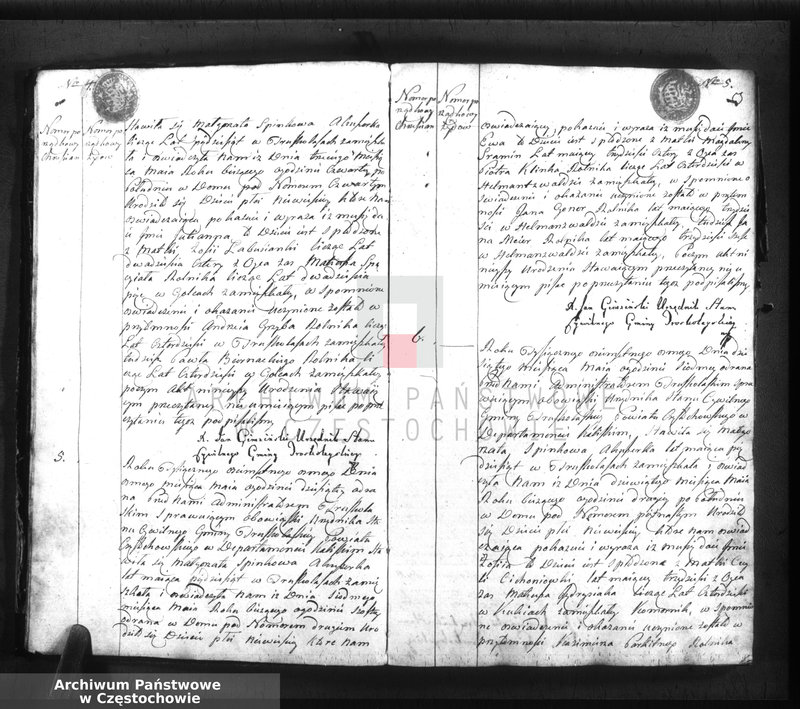 Nro 4.
Nomer po
rządkowy
Chrześcian
Nomer po
rządkowy
Żydow
Stawiła się Małgorzata Spinkowa Akuszerka
licząc Lat pędziesiąt w Truskolasach zamieszka
ła i oświadczyła nam iż Dnia trzeciego miesią
ca maia Roku bieżącego ogodzinie Czwarty po
południu w Domu pod Nomorem Czwartym
Urodziło się Dziecie płci niewieściej które nam
oświadczaiąc pokazuie i wyraża iż mu się da
ie Jmie Julianna to Dziecie iest spłodzone
z Matki Zofii licząc Lat
dwadzieścia cztery z Oyca zaś
Rolnika licząc Lat dwadzieścia
pięć w Golcach zamieszkały, w spomnione
oświadczenie i okazanie uczynione zostało w
przytomności Andrzeia Grzyba Rolnika licząc
Lat Czterdzieści w Truskolasach zamieszkały
tudzież Pawła Biernackiego Rolnika li
cząc Lat Czterdzieści w Golcach zamieszkały
poczym Akt ninieyszy Urodzenia Stawaiący
przeczytany nie umieiącym pisać po prze
czytaniu tego podpisaliśmy
X. Jan Gisiński Urzędnik Stanu
Cywilnego Gminy
5.
Roku Tysiącznego osimsetnego osmego Dnia
osmego miesiąca Maia ogodzinie dziesiąty zra
na przed nami Administratorem Truskola
skim sprawuiącym obowiązki Urzędnika Sta
nu Cywilnego Gminy Truskolaskiej Powiatu
Częstochowskiego w Departamencie Kaliskim Sta
wiła się Małgorzata Spinkowa Akuszerka
lat maiąca pędziesiąt w Truskolasach zamie
szkała i oświadczyła nam iż Dnia siódmego
miesiąca Maia Roku bieżącego ogodzinie szosty
zrana w Domu pod Nomorem drugim Uro
dziło się Dziecie płci niewieściej które nam
Nro 5.
Nomer po
rządkowy
Chrześcian
Nomer po
rządkowy
Żydow
oświadczaiąc, pokazuie i wyraża iż mu się daie Jmie
Ewa to Dziecie iest spłodzone z matki Magdaleny
Lat maiący trzydzieści cztery z Oyca zaś
Piotra Klinka Rolnika licząc Lat Czterdzieści w
zamieszkały, w spomnione o
świadczenie i okazanie uczynione zostało w przytom
ności Jana Rolnika lat maiącego trzydzie
ści w zamieszkały, tudzież Ja
na Meier Rolnika lat maiącego trzydzieści
w zamieszkały, Poczym Akt ni
nieyszy Urodzenia Stawaiącym przeczytany nie u
mieiącym pisać po przeczytaniu tego podpisaliśmy
X. Jan Gisiński Urzędnik Stanu
Cywilnego Gminy
6.
Roku Tysiącznego osimsetnego osmego Dnia dzie
siątego miesiąca Maia ogodzinie siódmy zrana
przed nami Administratorem Truskolaskim spra
wuiącym obowiązki Urzędnika Stanu Cywilnego
Gminy Truskolaskiej Powiatu Częstochowskiego w
Departamencie Kaliskim, Stawiła się Małgo
rzata Spinkowa Akuszerka lat maiąca pę
dziesiąt w Truskolasach zamieszkała i oświad
czyła nam iż Dnia dziewiątego miesiąca Maia
Roku bieżącego ogodzinie drugiej po południu
w Domu pod Nomorem Urodziło
się Dziecie płci niewieściej, które nam oświad
czaiąca pokazuie i wyraża iż mu się daie Jmie
Zofia to Dziecie iest spłodzone z Matki
lat maiący trzydzieści z Oyca
zaś licząc Lat Czterdzieści
w zamieszkały Komornik, w spomnio
ne oświadczenie i okazanie uczynione zostało w
przytomności Kazimierza Rolnika
ARCHIWUM PAŃSTWOWE
W CZĘSTOCHOWIE
Archiwum Państwowe
w Częstochowie